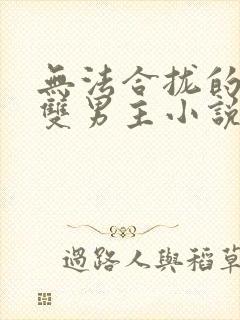 無法合拢的
雙男主小說
過路人與稻草